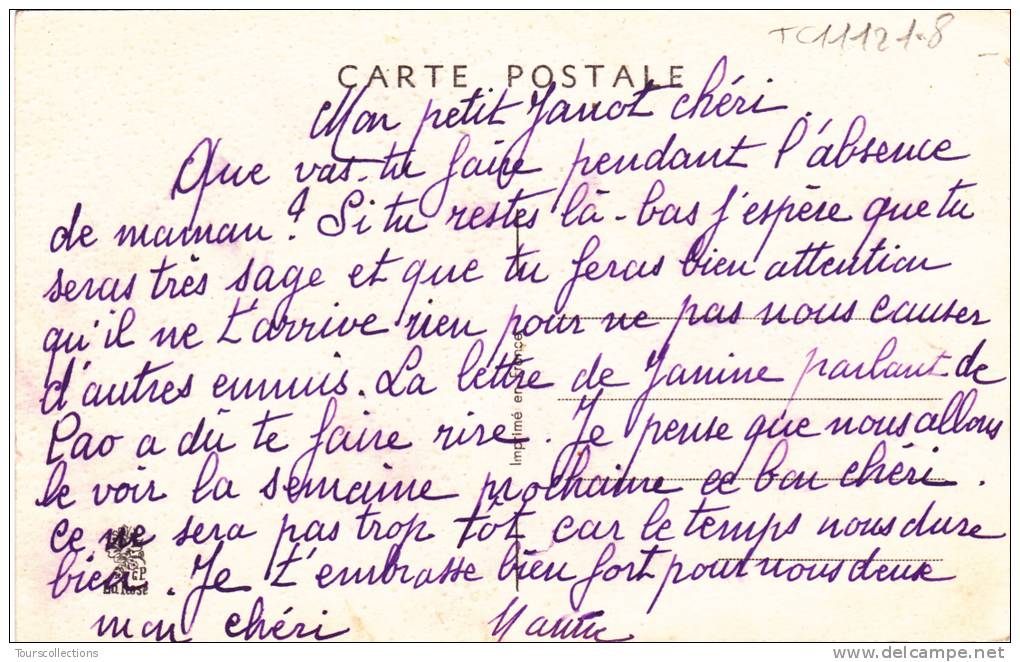 TC11121.8
CARTE POSTALE
Mon petit Janot chéri.
Que vas-tu faire pendant l'absence
de maman? Si tu restes là-bas j'espère que tu
seras très sage et que tu feras bien attention
qu'il ne t'arrive rien pour ne pas nous causer
d'autres ennuis. La lettre de Janine parlant de
Pao a dû te faire rire. Je pense que nous allons
le voir la semaine prochaine ce bon chéri.
Ce ne sera pas trop tôt car le temps nous dure
bien. Je t'embrasse bien fort pour nous deux
mon chéri
Imprimé en France
Ed. Rose
Tourscollections
www.delcampe.net